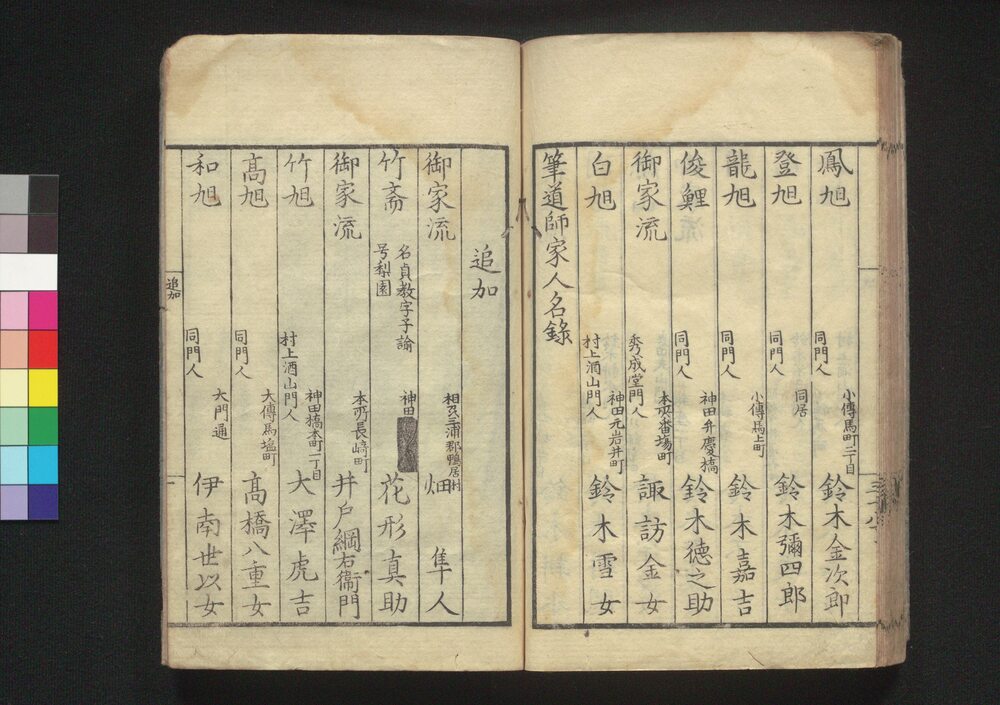 鳳旭 同門人 小傳馬町二丁目 鈴木金次郎
登旭 同門人 同居 鈴木彌四郎
龍旭 同門人 小傳馬上町 鈴木嘉吉
俊鯉 同門人 神田弁慶橋 鈴木德之助
御家流 秀成堂門人 本所番場町 諏訪金女
白旭 村上酒山門人 神田元岩井町 鈴木雪女
筆道師家人名錄
追加
御家流 相刕三浦郡鴨居村 畑隼人
竹斎 名貞教字子諭 号梨園 神田 花形真助
御家流 本所長﨑町 井戸綱右衛門
竹旭 村上酒山門人 神田橋本町一丁目 大澤虎吉
髙旭 同門人 大傳馬塩町 髙橋八重女
和旭 同門人 大門通 伊南世以女
追加
一